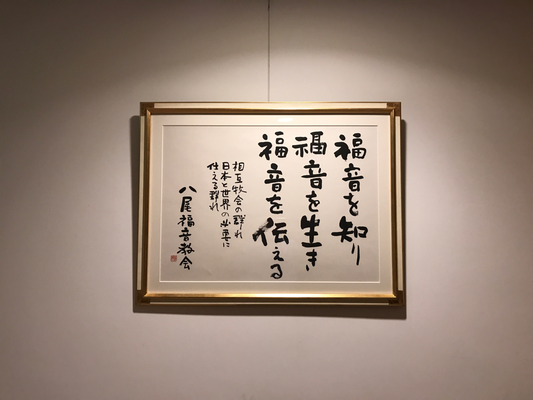 福音を知り
福音を生き
福音を伝える
相互牧会の群れ
日本と世界の必要に
仕える群れ
八尾福音教会